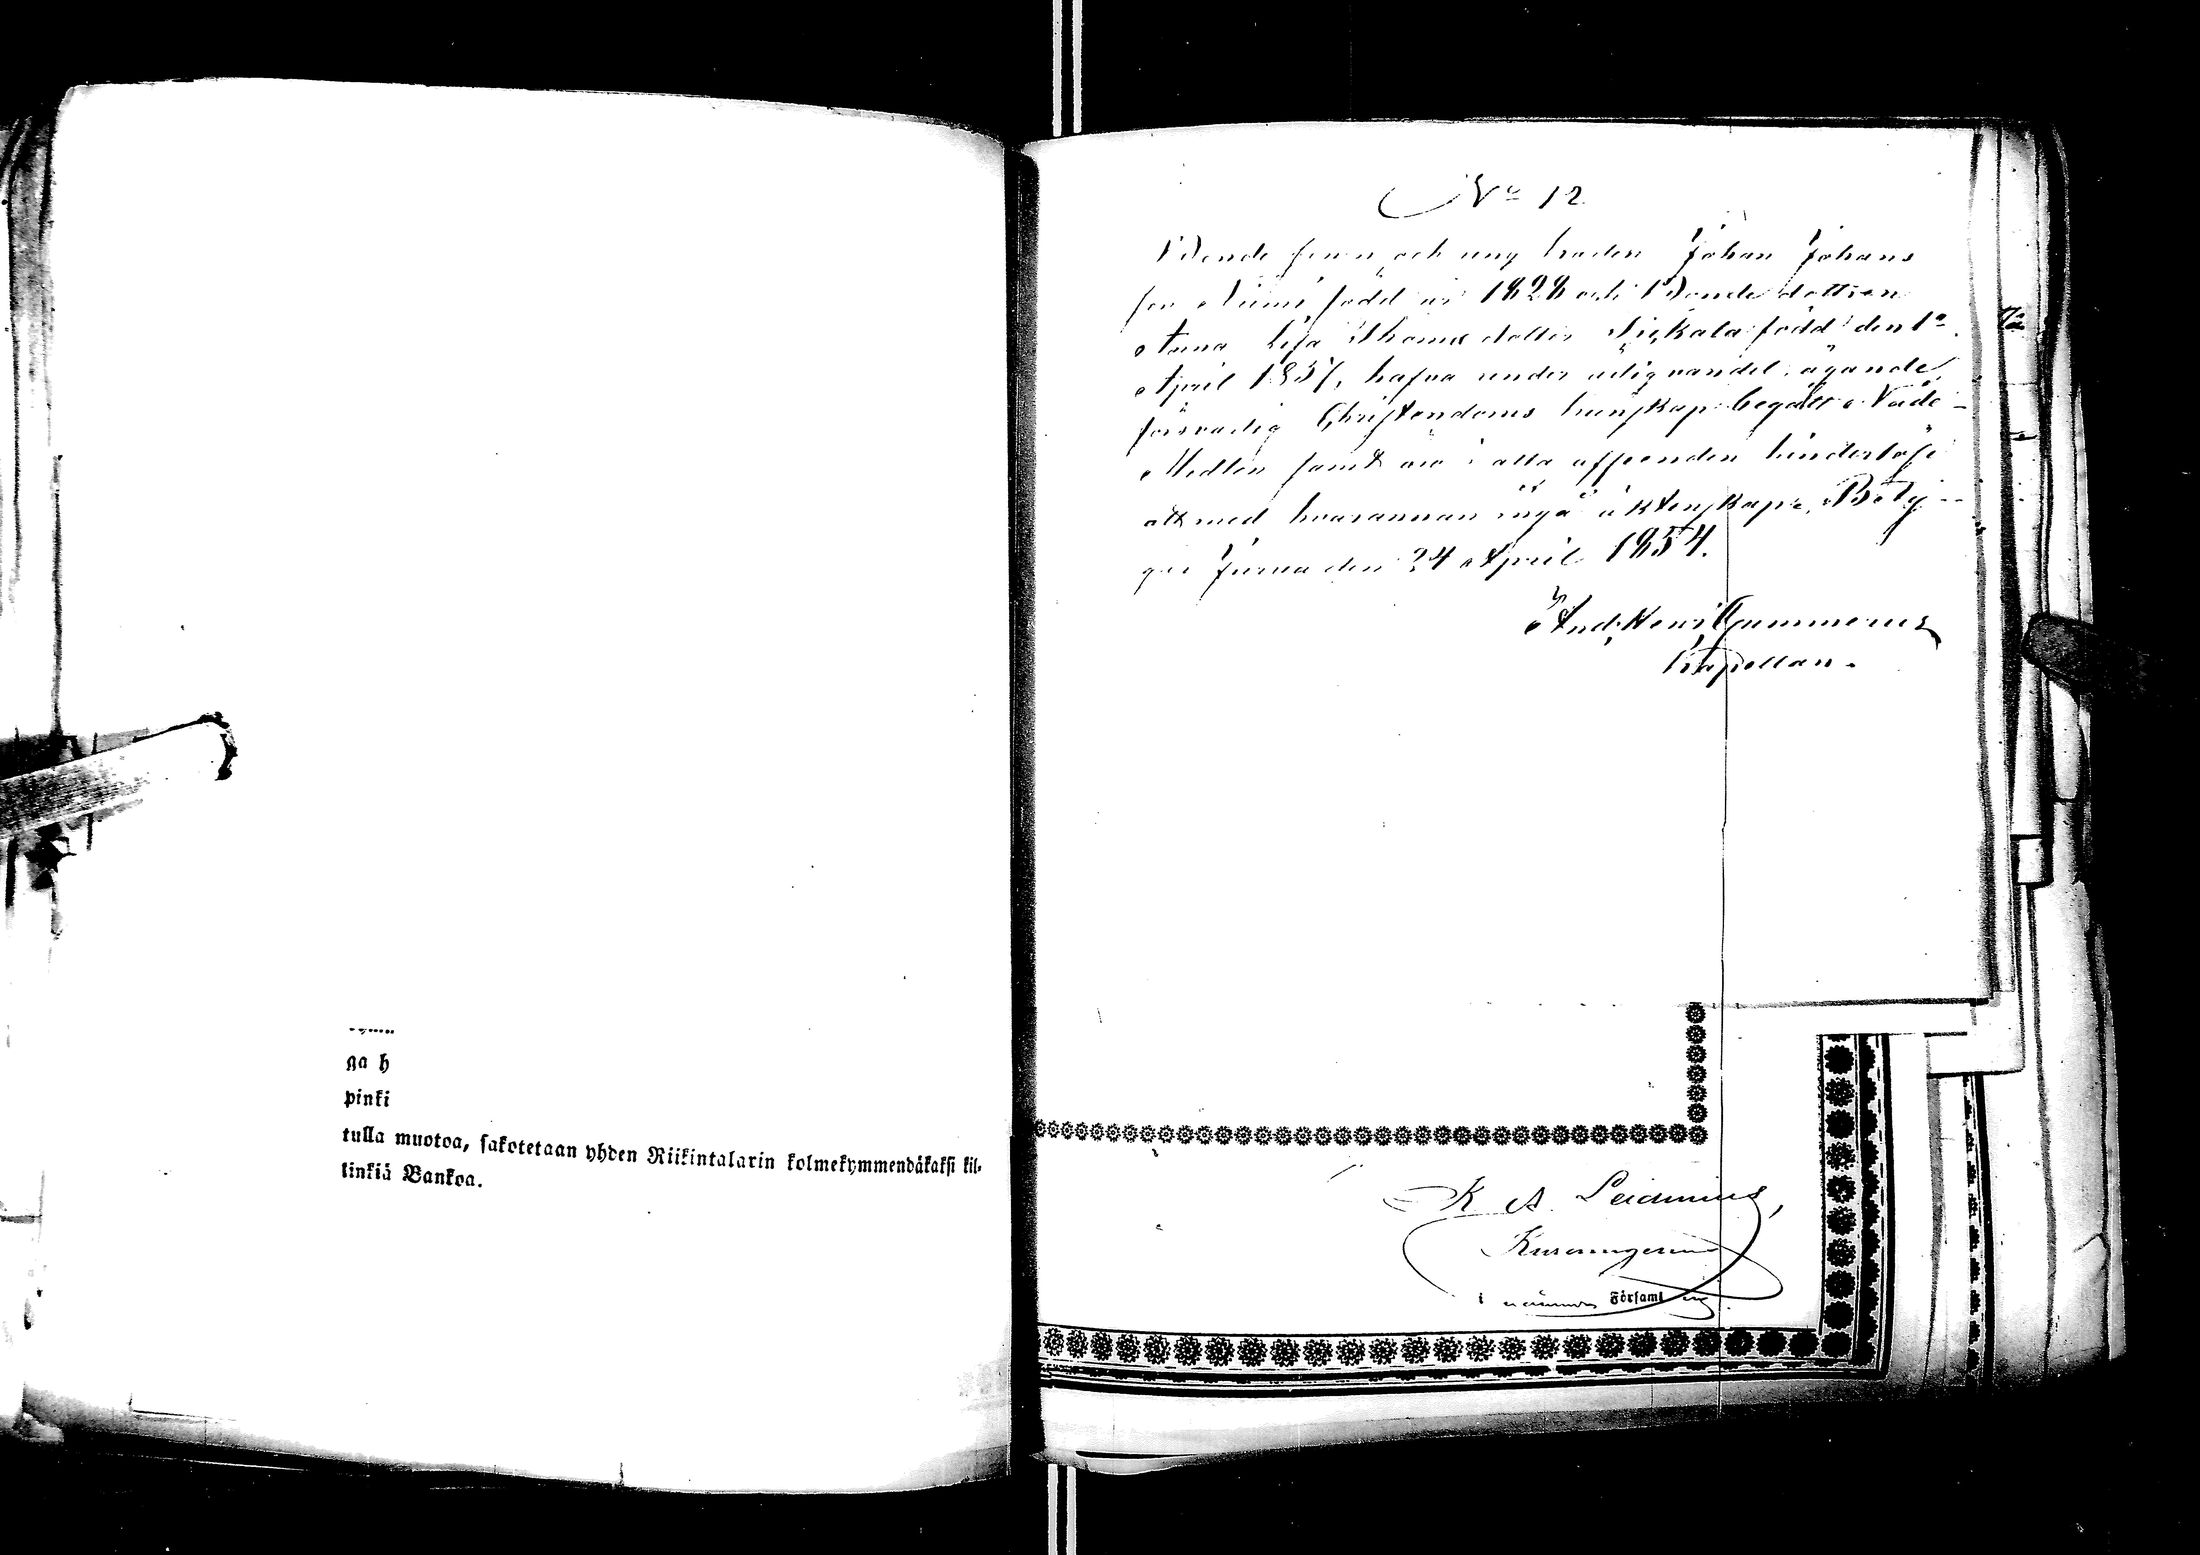 ga h
pinki
tulla muotoa, sakotetaan yhden Riikintalarin kolmekymmendäkaksi kil-
linkiä Bankoa.
No 12
Bonde sonen och ung karlen Johan Johans
son Niemi född år 1828 och Bonde dottren
Anna Lisa Thomæ dotter född den 1a
April 1837, hafva under ärlig vandel, ägande
försvarlig Christendoms kunskap begått Nåde-
Medlen samt äro i alla afseenden hinderlöse
att med hvarannan ingå äktenskap. Bety-
gar Jurva den 24 April 1854.
And: Henr: Gummerus
Kapellan.
K A
i Församl